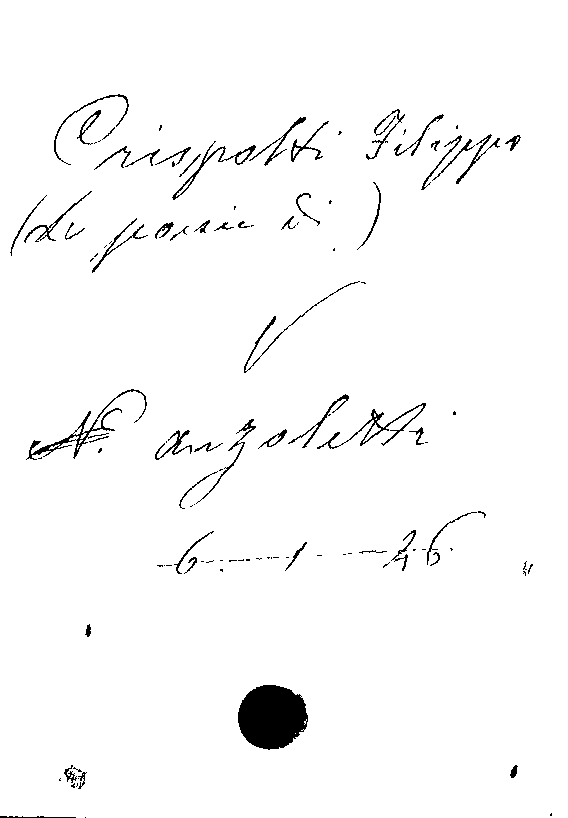 Crispolti Filippo
(Le poesie di)
V
anzoletti
6 - 1 - 26